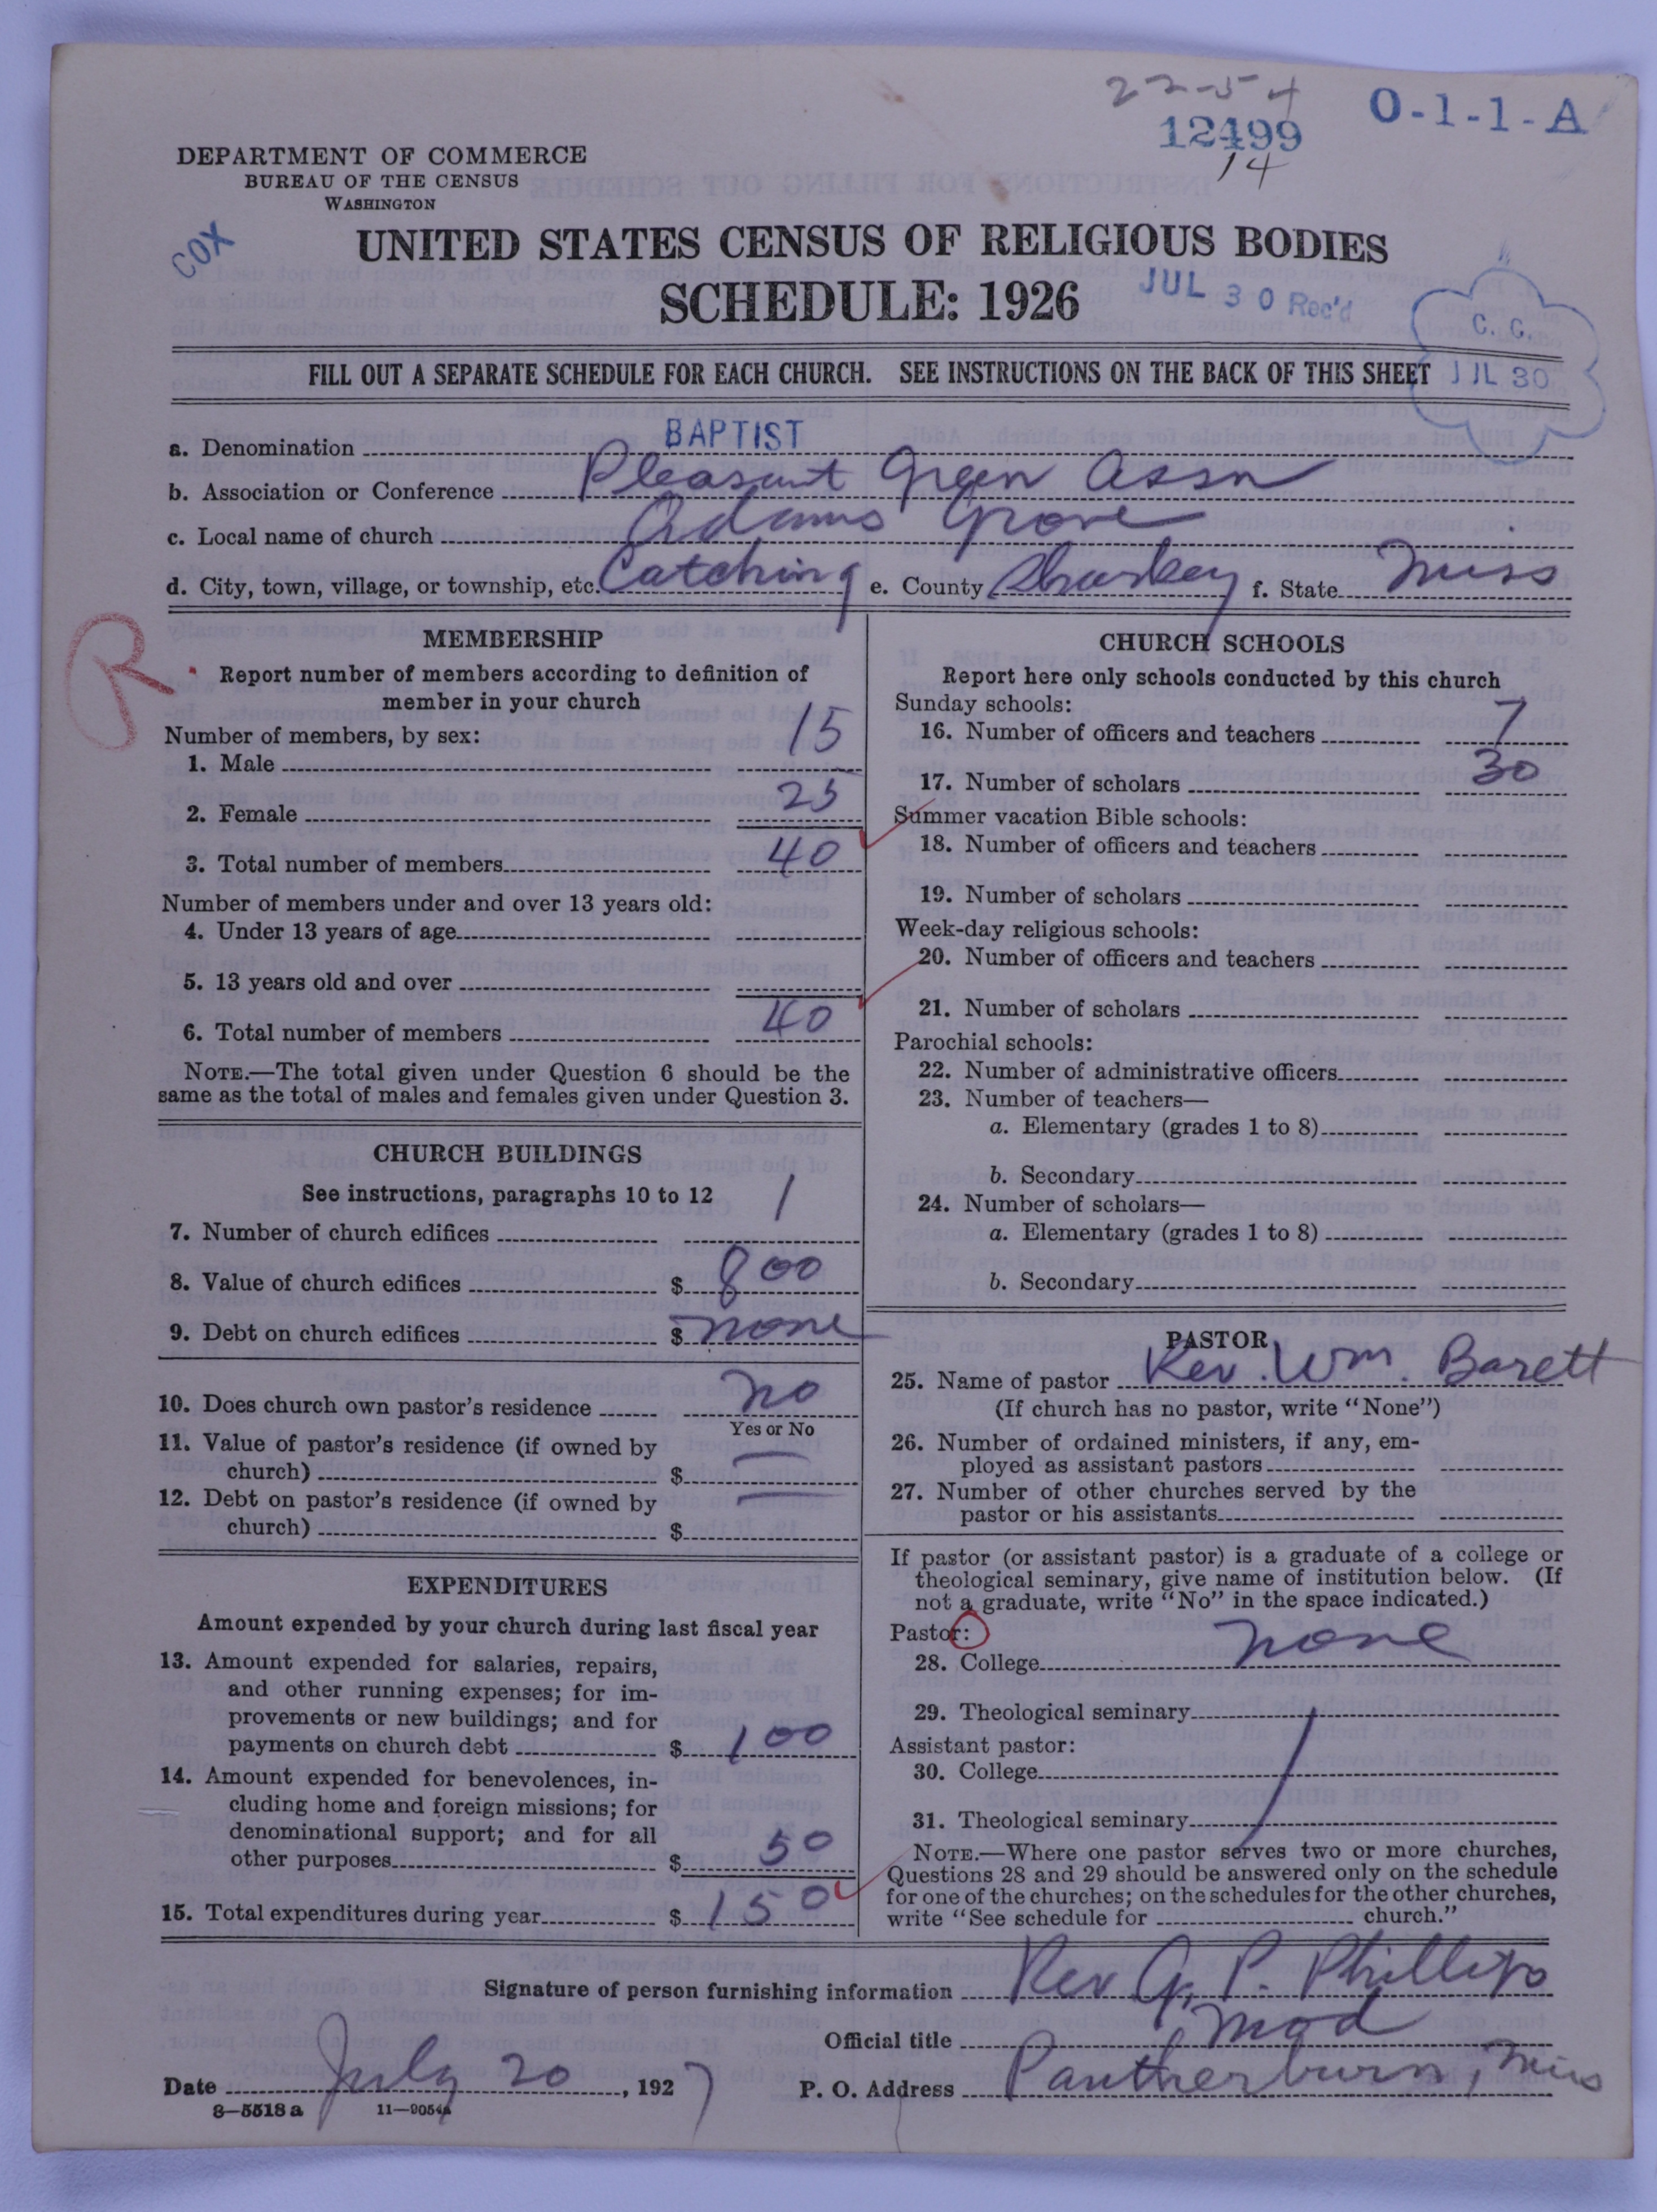 22-54
12499
14
O-1-1-A
DEPARTMENT OF COMMERCE
BUREAU OF THE CENSUS
WASHINGTON
COX
UNITED STATES CENSUS OF RELIGIOUS BODIES
SCHEDULE: 1926
JUL 30 Rec'd
C. C.
JUL 30
FILL OUT A SEPARATE SCHEDULE FOR EACH CHURCH. SEE INSTRUCTIONS ON THE BACK OF THIS SHEET
a. Denomination BAPTIST
b. Association or Conference Pleasant Green Assn
c. Local name of church Adams Grove
d. City, town, village, or township, etc. Catching e. County Sharkey f. State Miss
R
MEMBERSHIP
Report number of members according to definition of
member in your church
Number of members, by sex:
1. Male 15
2. Female 25
3. Total number of members 40
Number of members under and over 13 years old:
4. Under 13 years of age
5. 13 years old and over
6. Total number of members 40
NOTE.—The total given under Question 6 should be the
same as the total of males and females given under Question 3.
CHURCH BUILDINGS
See instructions, paragraphs 10 to 12
7. Number of church edifices 1
8. Value of church edifices $ 800
9. Debt on church edifices $ none
10. Does church own pastor's residence no
Yes or No
11. Value of pastor's residence (if owned by
church) $ —
12. Debt on pastor's residence (if owned by
church) $ —
EXPENDITURES
Amount expended by your church during last fiscal year
13. Amount expended for salaries, repairs,
and other running expenses; for im-
provements or new buildings; and for
payments on church debt $ 100
14. Amount expended for benevolences, in-
cluding home and foreign missions; for
denominational support; and for all
other purposes $ 50
15. Total expenditures during year $ 150
CHURCH SCHOOLS
Report here only schools conducted by this church
Sunday schools:
16. Number of officers and teachers 7
17. Number of scholars 30
Summer vacation Bible schools:
18. Number of officers and teachers
19. Number of scholars
Week-day religious schools:
20. Number of officers and teachers
21. Number of scholars
Parochial schools:
22. Number of administrative officers
23. Number of teachers—
a. Elementary (grades 1 to 8)
b. Secondary
24. Number of scholars—
a. Elementary (grades 1 to 8)
b. Secondary
PASTOR
25. Name of pastor Rev. Wm. Barett
(If church has no pastor, write "None")
26. Number of ordained ministers, if any, em-
ployed as assistant pastors
27. Number of other churches served by the
pastor or his assistants
If pastor (or assistant pastor) is a graduate of a college or
theological seminary, give name of institution below. (If
not a graduate, write "No" in the space indicated.)
Pastor:
28. College none
29. Theological seminary
Assistant pastor:
30. College
31. Theological seminary
NOTE.—Where one pastor serves two or more churches,
Questions 28 and 29 should be answered only on the schedule
for one of the churches; on the schedules for the other churches,
write "See schedule for church."
Signature of person furnishing information Rev G. P. Phillips
Official title Mod
Date July 20, 1927 P. O. Address Pantherburn, Miss
8—5518 a 11—9054a